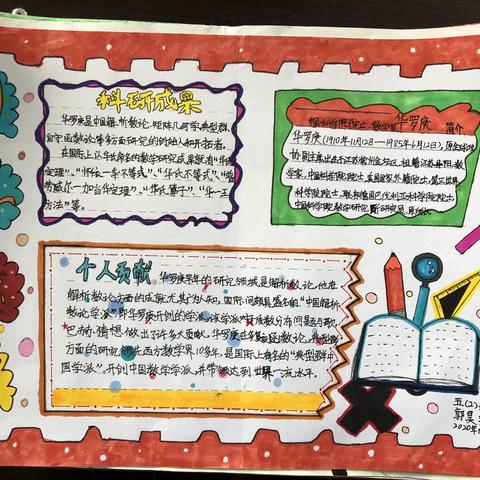 科研成果
华罗庚是中国解析数论、矩阵几何学、典型群、
自守函数论等多方面研究的创始人和开拓者。
在国际上以华氏命名的数学研究成果就有“华氏
定理”、“怀依—华不等式”、“华氏不等式”、“普
劳威尔—加当华定理”、“华氏算子”、“华—王
方法”等。
中国科学院院士、数学家 华罗庚 简介
华罗庚(1910年11月12日—1985年6月12日),原全国政
协副主席出生于江苏常州金坛区,祖籍江苏丹阳,数
学家,中国科学院院士,美国国家外籍院士,第三世界
科学院院士,联邦德国巴伐利亚科学院院士,
中国科学院数学研究所研究员、原所长
个人贡献 华罗庚早年的研究领域是解析数论,他在
解析数论方面的成就尤其广为人知,国际间颇具盛名的“中国解析
数论学派”即华罗庚开创的学派,该学派对于质数分布问题与歌
巴赫猜想做出了许多大贡献。华罗庚在多复变函数论,典型群
方面的研究领先西方数学界10多年,是国际上有名的“典型群中
国学派”,开创中国数学学派,并带领达到世界一流水平。
五(2)
郭昊
2020年